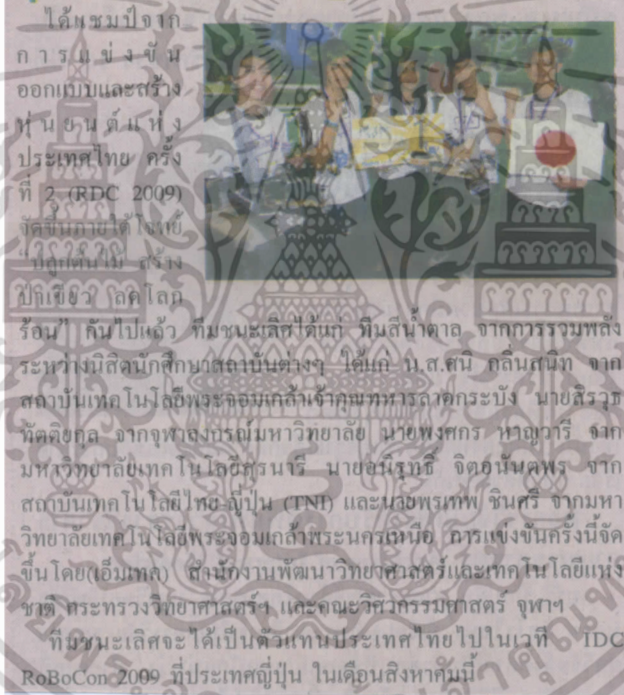 ได้แชมป์จาก
การแข่งขัน
ออกแบบและสร้าง
หุ่นยนต์แห่ง
ประเทศไทย ครั้ง
ที่ 2 (RDC 2009)
จัดขึ้นภายใต้โจทย์
"ปลูกต้นไม้ สร้าง
ป่าเขียว ลดโลก
ร้อน" กันไปแล้ว ทีมชนะเลิศได้แก่ ทีมสีน้ำตาล จากการรวมพลัง
ระหว่างนิสิตนักศึกษาสถาบันต่างๆ ได้แก่ น.ส.ศนิ กลิ่นสนิท จาก
สถาบันเทคโนโลยีพระจอมเกล้าเจ้าคุณทหารลาดกระบัง นายสิรวุธ
ทัตติยกุล จากจุฬาลงกรณ์มหาวิทยาลัย นายพงศกร หาญวารี จาก
มหาวิทยาลัยเทคโนโลยีสุรนารี นายอนิรุทธิ์ จิตอนันตพร จาก
สถาบันเทคโนโลยีไทย-ญี่ปุ่น (TNI) และนายพรเทพ ชินศรี จากมหา
วิทยาลัยเทคโนโลยีพระจอมเกล้าพระนครเหนือ การแข่งขันครั้งนี้จัด
ขึ้นโดย(เอ็มเทค) สำนักงานพัฒนาวิทยาศาสตร์และเทคโนโลยีแห่ง
ชาติ กระทรวงวิทยาศาสตร์ฯ และคณะวิศวกรรมศาสตร์ จุฬาฯ
ทีมชนะเลิศจะได้เป็นตัวแทนประเทศไทยไปในเวที IDC
RoBoCon 2009 ที่ประเทศญี่ปุ่น ในเดือนสิงหาคมนี้